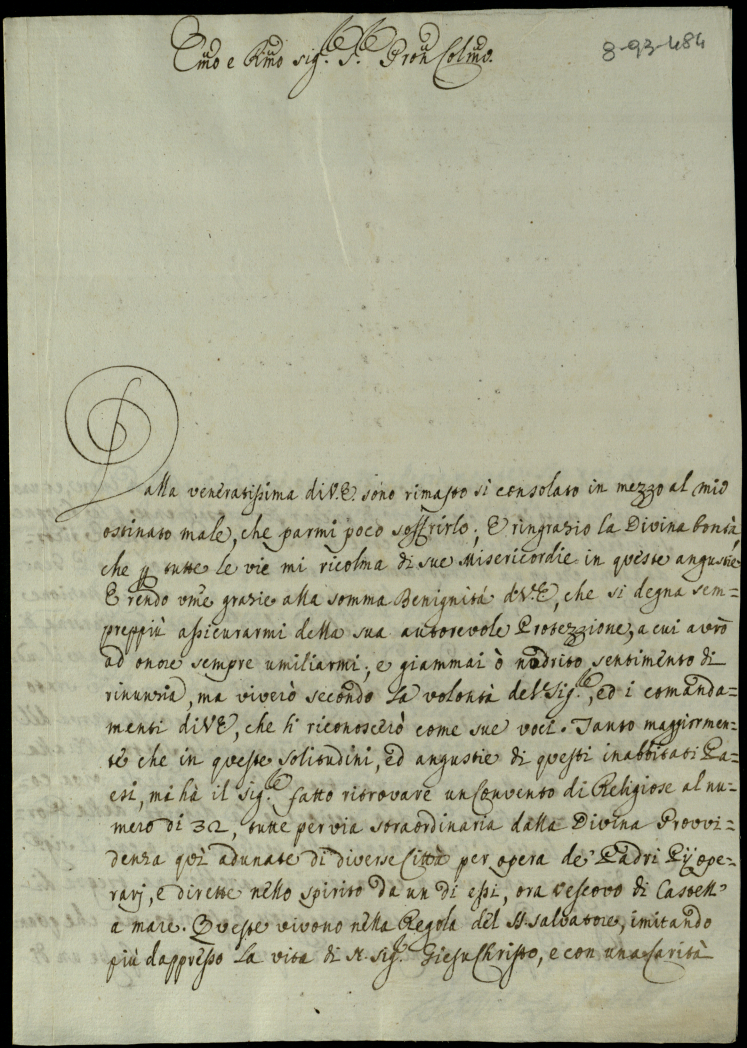 Emo e Rmo sig.re S.re Pron Colmo.
8-93-484
Dalla veneratissima di V.E. sono rimasto sì consolato in mezzo al mio
ostinato male, che parmi poco soffrirlo, E ringrazio la Divina bontà,
che p tutte le vie mi ricolma di sue Misericordie in queste angustie
E rendo vme grazie alla somma Benignità di V.E, che si degna sem=
preppiù assicurarmi della sua autorevole Protezzione, a cui avrò
ad onore sempre umiliarmi; e giammai ò nudrito sentimento di
rinunzia, ma viverò secondo la volontà del Sig.re, ed i comanda=
menti di VE, che li riconoscerò come sue voci. Tanto maggiormen=
te che in queste solitudini, ed angustie di questi inabbitati Pa=
esi, mi hà il sig.re fatto ritrovare un Convento di Religiose al nu=
mero di 32, tutte per via straordinaria dalla Divina Provvi=
denza quì adunate di diverse Città per opera de' Padri Pij ope=
rarj, e dirette nello spirito da un di essi, ora vescovo di Castell'
a mare. Queste vivono nella Regola del SS. salvatore, imitando
più dappresso la vita di N. Sig.re Giesu Christo, e con una Carità